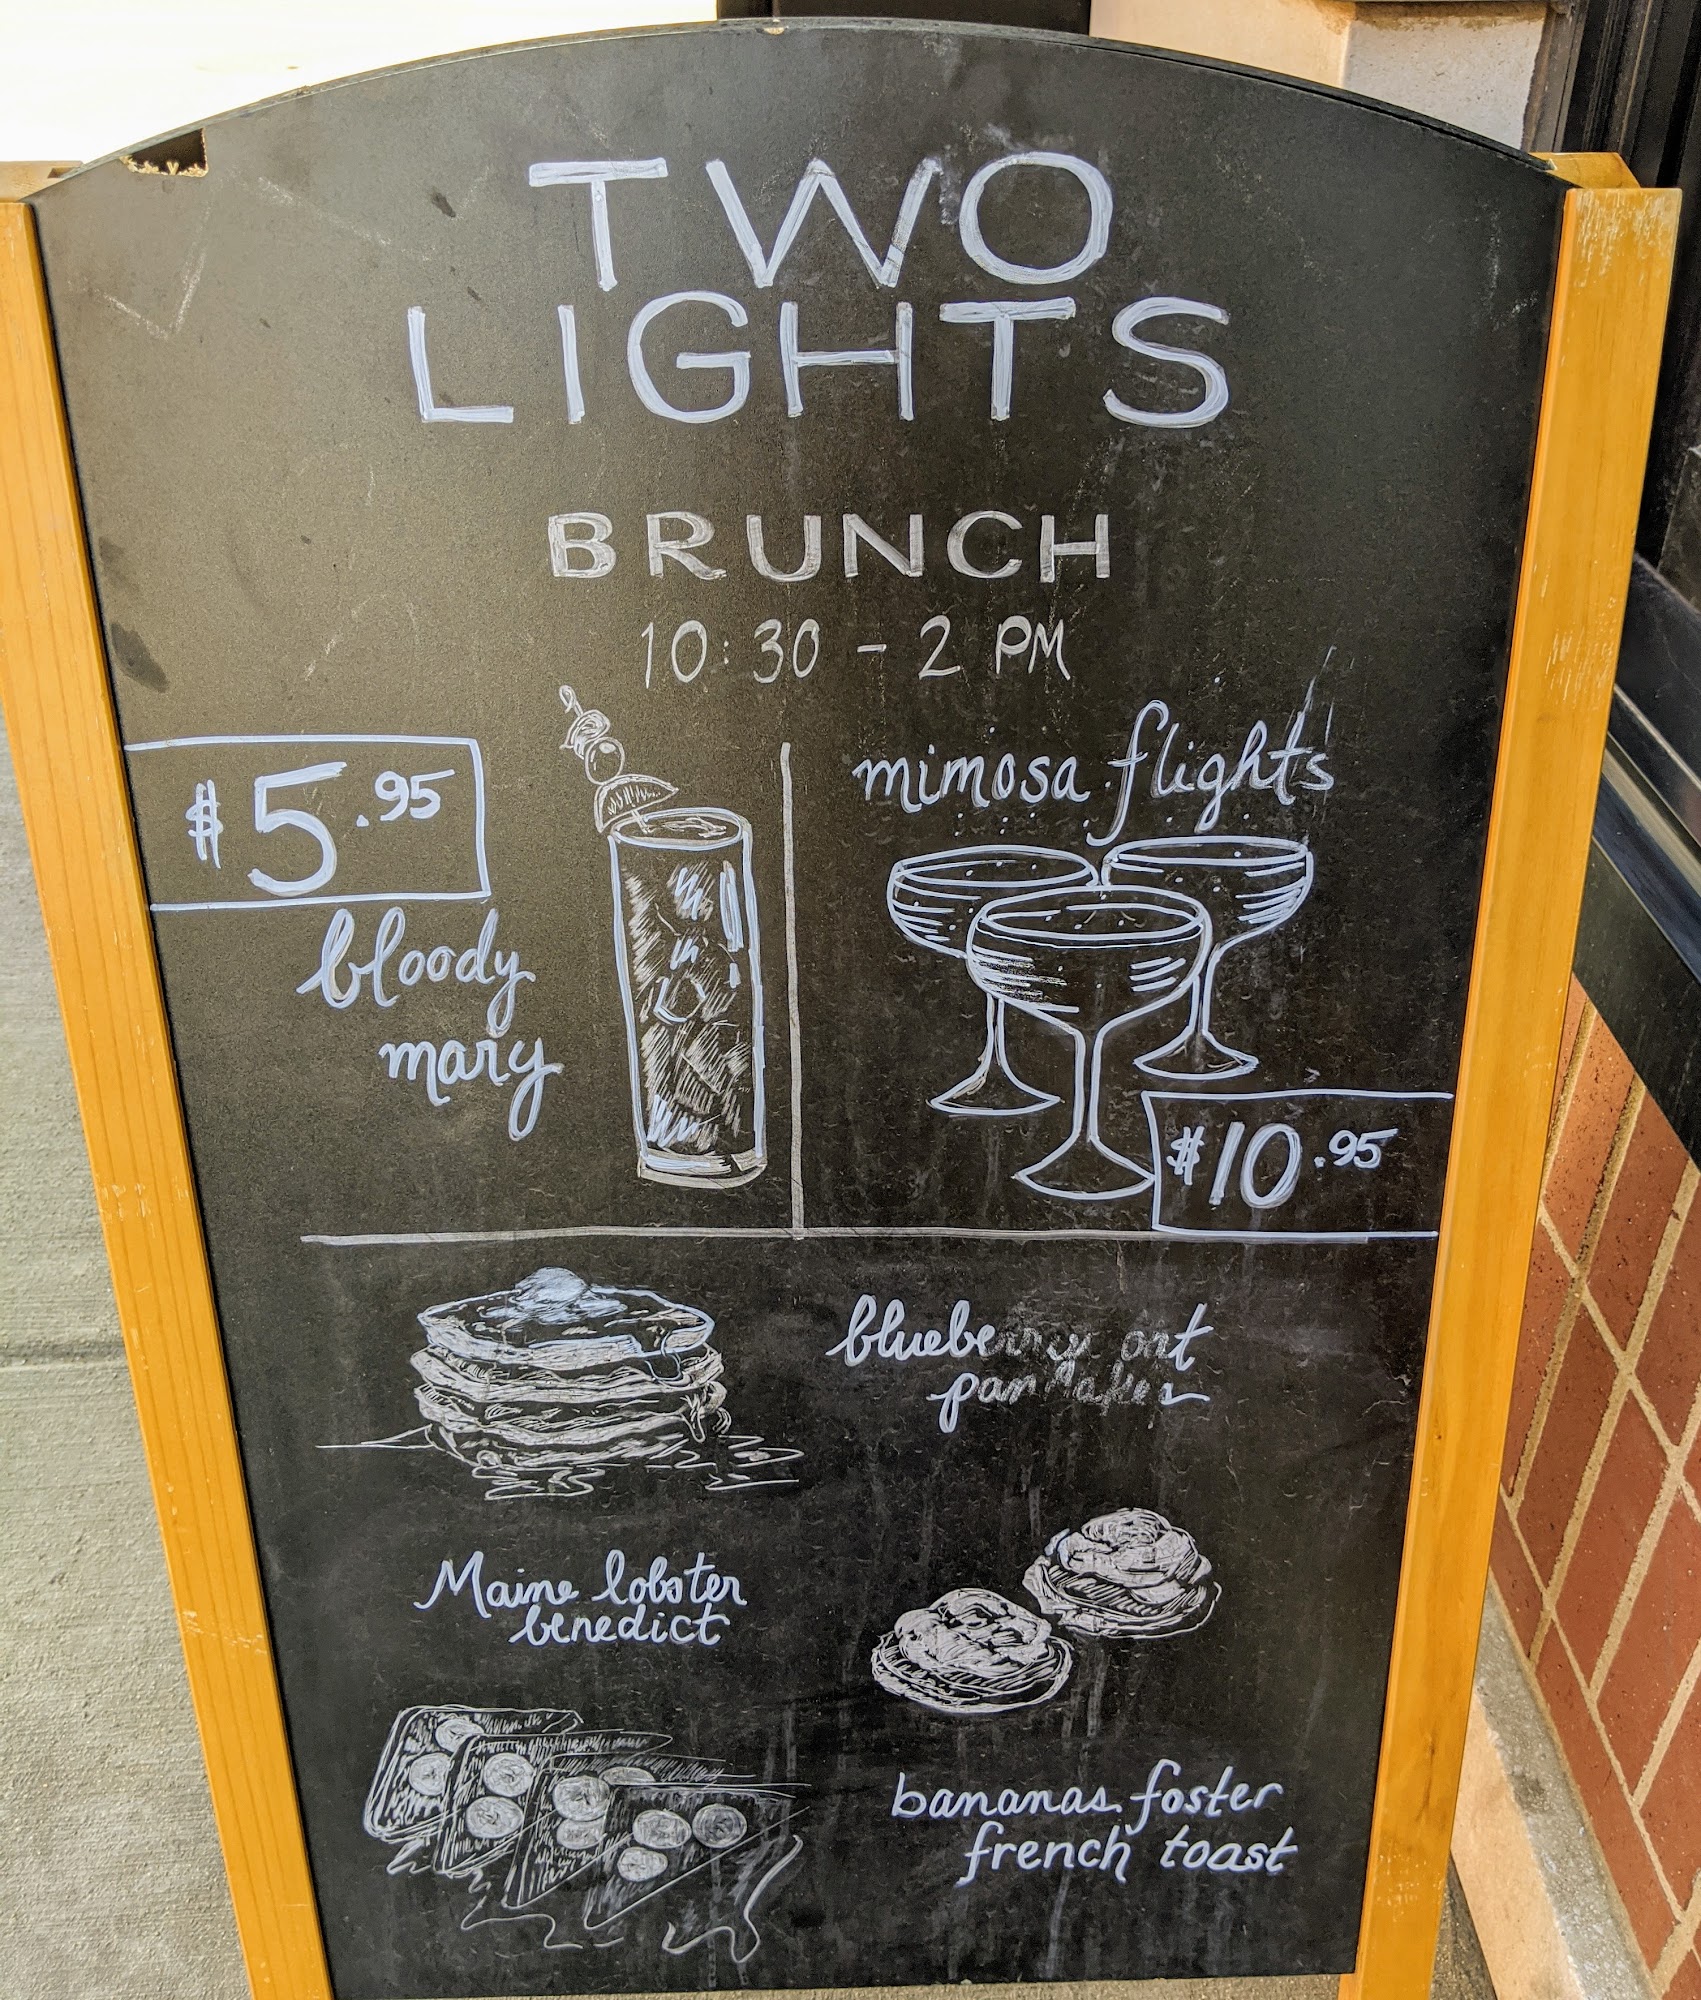 TWO
LIGHTS
BRUNCH
10:30 - 2 PM
$5.95
bloody
mary
mimosa flights
$10.95
blueberry oat
pancakes
Maine lobster
benedict
bananas foster
french toast